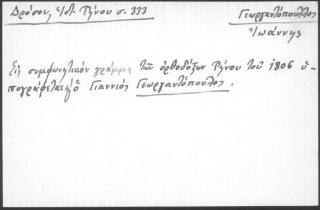 Δρόσου, Ἱστ. Τήνου σ. 333
Γεωργαντόπουλος
Ἰωάννης
Εἰς συμφωνητικὸν γράμμα τῶν ὀρθοδόξων Τήνου τοῦ 1806 ὑ-
πογράφεται ὁ Γιαννιὸς Γεωργαντόπουλος.